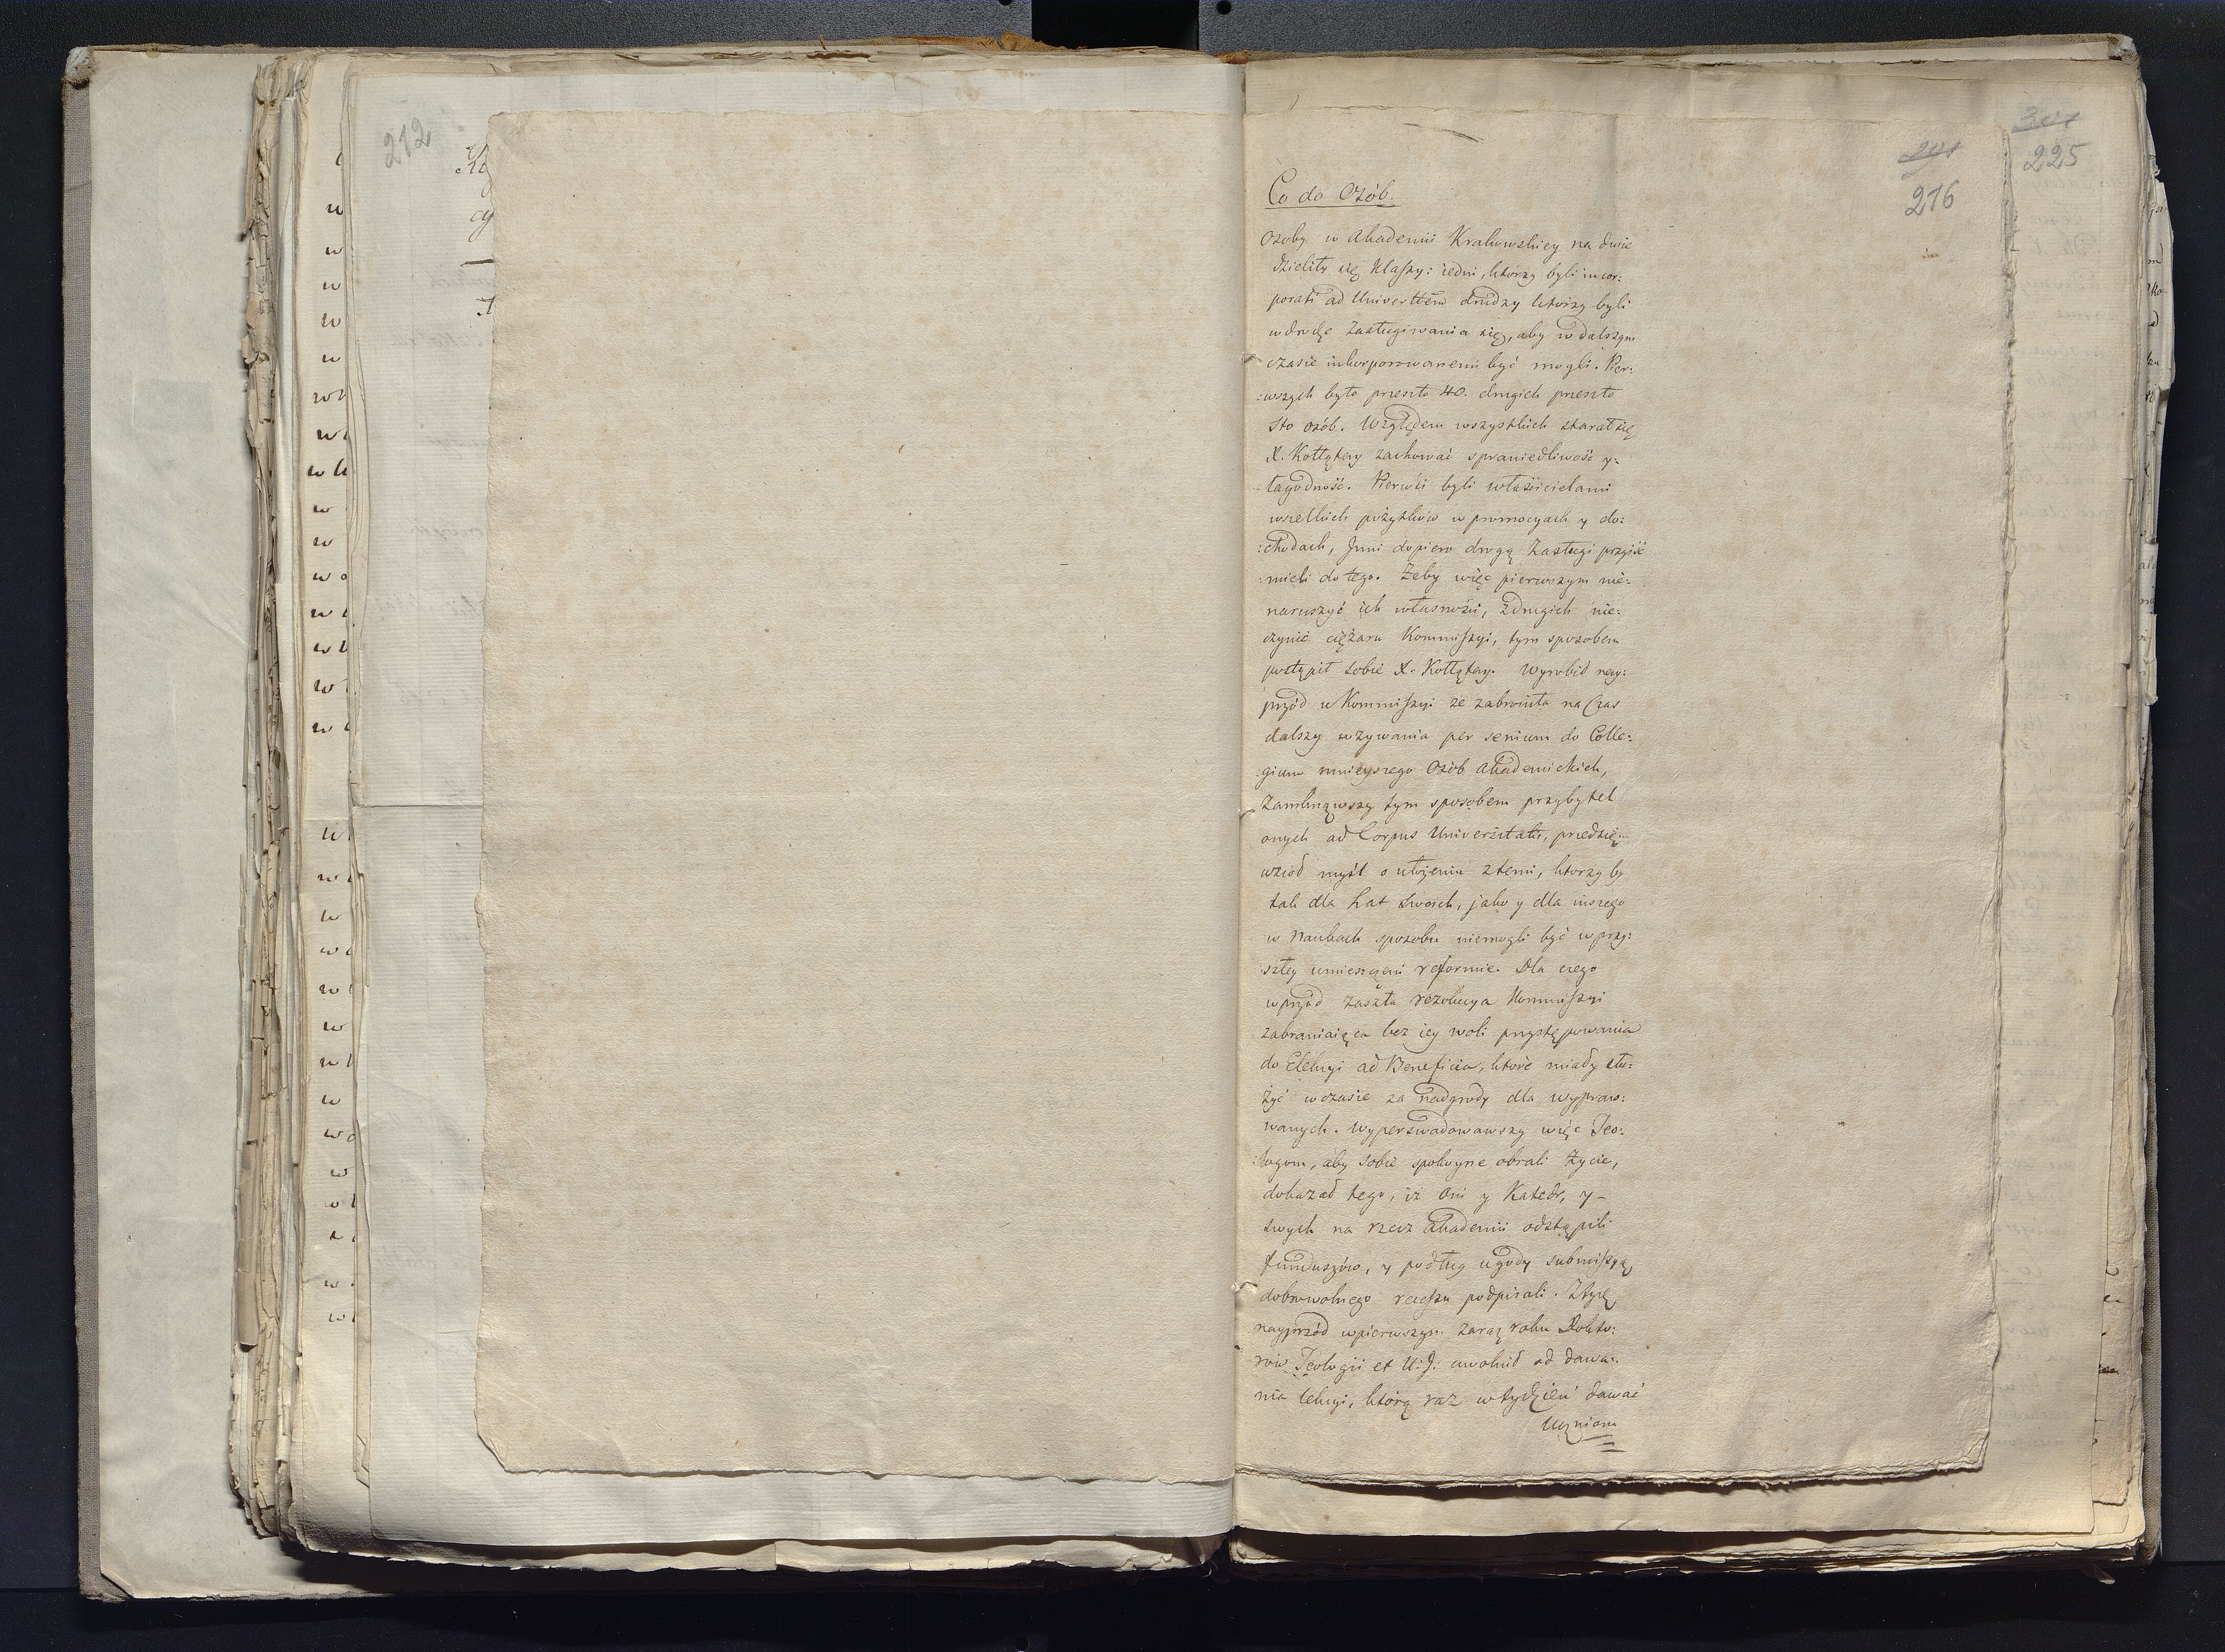 212
301
225
201
216
Co do Osób.
Osoby w Akademii Krakowskiey na dwie
dzieliły się Klaſsy: iedni, którzy byli incor:
porati ad Universttem drudzy którzy byli
w drodze Zasługiwania się, aby w dalszym
czasie inkorporowanemi być mogli. Pier:
:wszych było przeszło 40. drugich przeszło
sto osób. Względem wszystkich starał się
X. Kołłątay zachować sprawiedliwość y
łagodność. Pierwsi byli właścicielami
wszelkich pożytków w promocyach y do:
:chodach, Inni dopiero drogą Zasługi przyiść
mieli do tego. Żeby więc pierwszym nie:
naruszyć ich własności, z drugich nie:
czynić ciężaru Kommiſsyi, tym sposobem
postąpił sobie X. Kołłątay. Wyrobił nay:
przód u Kommiſsyi że zabroniła na Czas
dalszy wzywania per senium do Colle:
:gium mnieyszego Osób Akademickich,
Zamknąwszy tym sposobem przybytek
onych ad Corpus Universitatis, przedsię:
wziął myśl o ułożeniu z temi, którzy by
tak dla Lat swoich, jako y dla inszego
w Naukach sposobu niemogli być w przy:
:szłey umieszczeni reformie. Dla czego
wprzód zaszła rezolucya Kommiſsyi
zabraniaiąca bez iey woli przystępowania
do Elekcyi ad Beneficia, które miały słu:
żyć w czasie za nadgrody dla wypraco:
wanych. Wyperswadowawszy więc Teo:
:logom, aby sobie spokoyne obrali Życie,
dokazał tego, iż Oni y Katedr, y –
swych na rzecz Akademii odstąpili
funduszów, y podług ugody submiſsyą
dobrowolnego recessu podpisali. Ztych
nayprzód w pierwszym zaraz roku Dokto:
rów Teologii et U: J: uwolnił od dawa:
nia lekcyi, którą raz w tydzień dawać
Uczniom